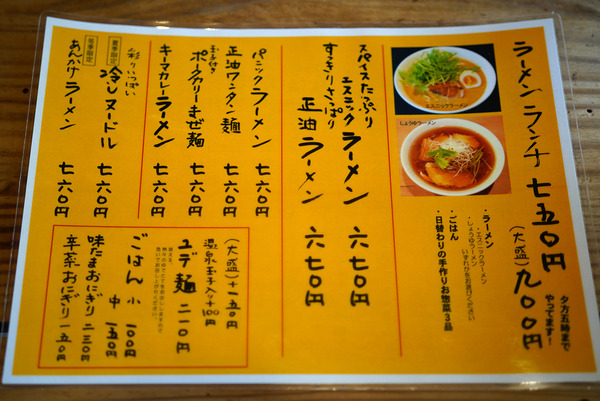 ラーメンランチ 七五〇円
(大盛) 九〇〇円
夕方五時まで
やってます!
エスニックラーメン
しょうゆラーメン
・ラーメン
・エスニックラーメン
・しょうゆラーメン
いずれかをお選びください
・ごはん
・日替わりの手作りお惣菜3品
スパイスたっぷり
エスニックラーメン 六七〇円
すっきりさっぱり
正油ラーメン 六七〇円
パニックラーメン 七六〇円
正油ワンタン麺 七六〇円
玉子付き
ポークカリーまぜ麺 七六〇円
キーマカレーラーメン 七六〇円
彩りいっぱい
夏季限定
冷しヌードル 七六〇円
冬季限定
あんかけラーメン 七六〇円
(大盛) +一五〇円
温泉玉子入り +100円
ユデ麺 二一〇円
ごはん 小 100円
中 150円
味たまおにぎり 二三〇円
辛菜おにぎり 一五〇円